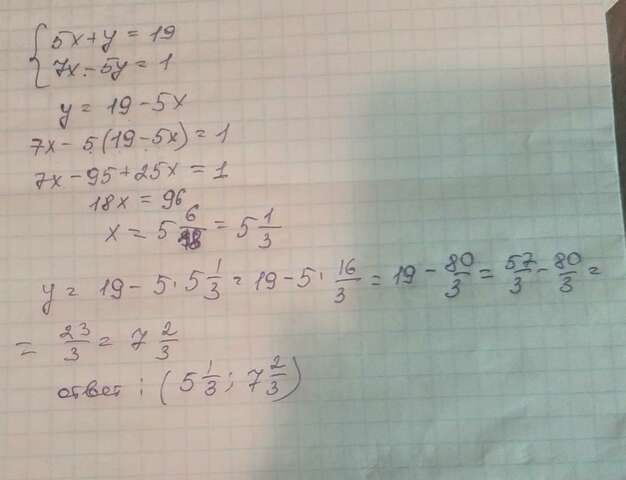 { 5x + y = 19
7x - 5y = 1
y = 19 - 5x
7x - 5(19 - 5x) = 1
7x - 95 + 25x = 1
18x = 96
x = 5 6/18 = 5 1/3
y = 19 - 5 · 5 1/3 = 19 - 5 · 16/3 = 19 - 80/3 = 57/3 - 80/3 =
= 23/3 = 7 2/3
ответ: (5 1/3; 7 2/3)